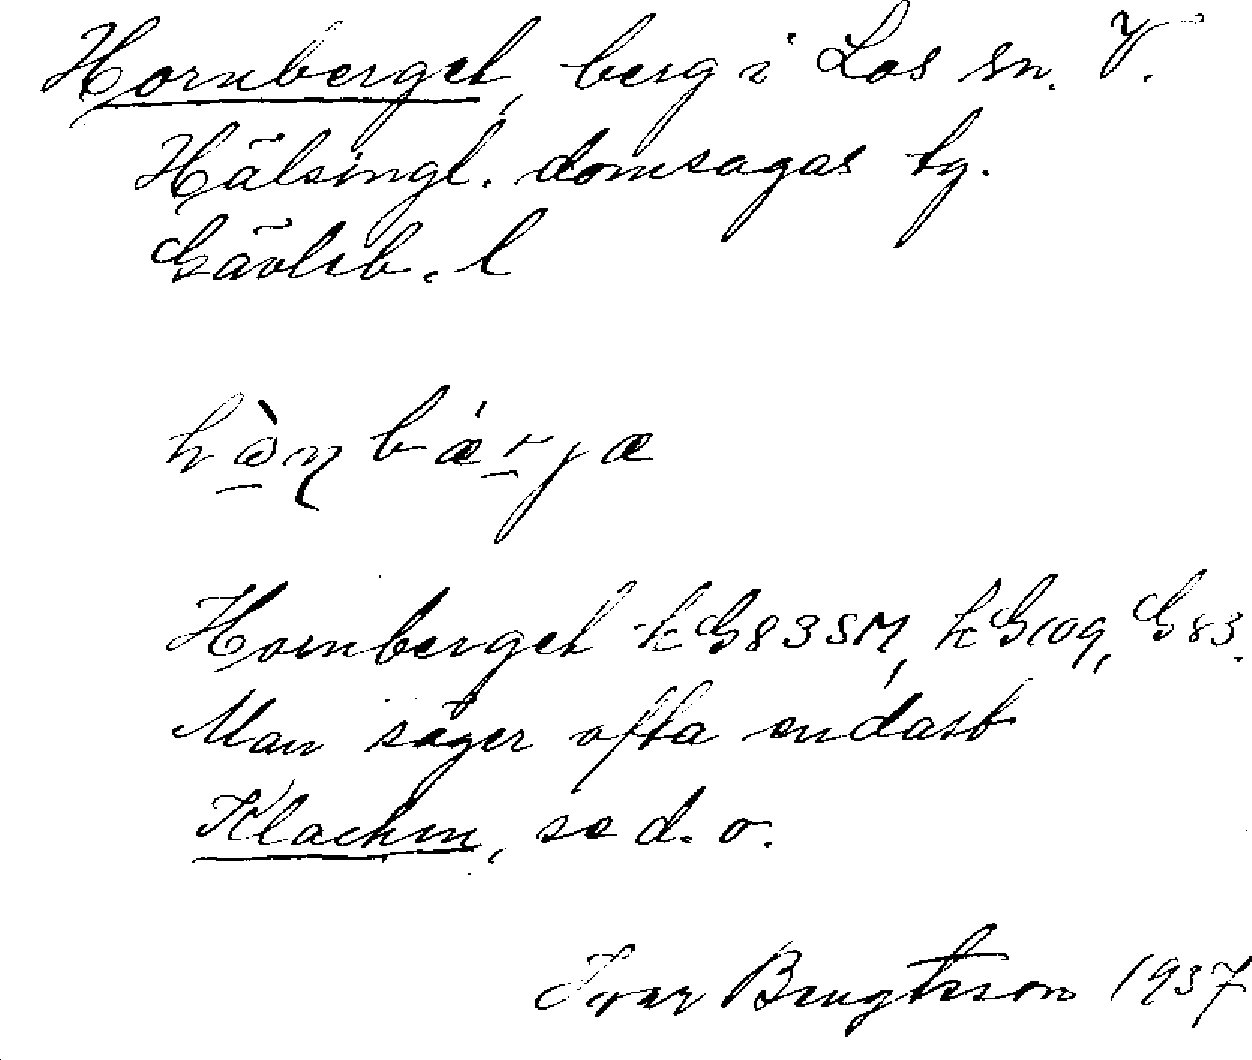 Hornberget, berg i Los sn. V.
Hälsingl. domsagas tg.
Gävleb. l
hɷ̀ɳbǽrjæ
Hornberget kG83SM, kG109, G83.
Man säger ofta endast
Klacken, se d. o.
Ivar Bengtsson 1937